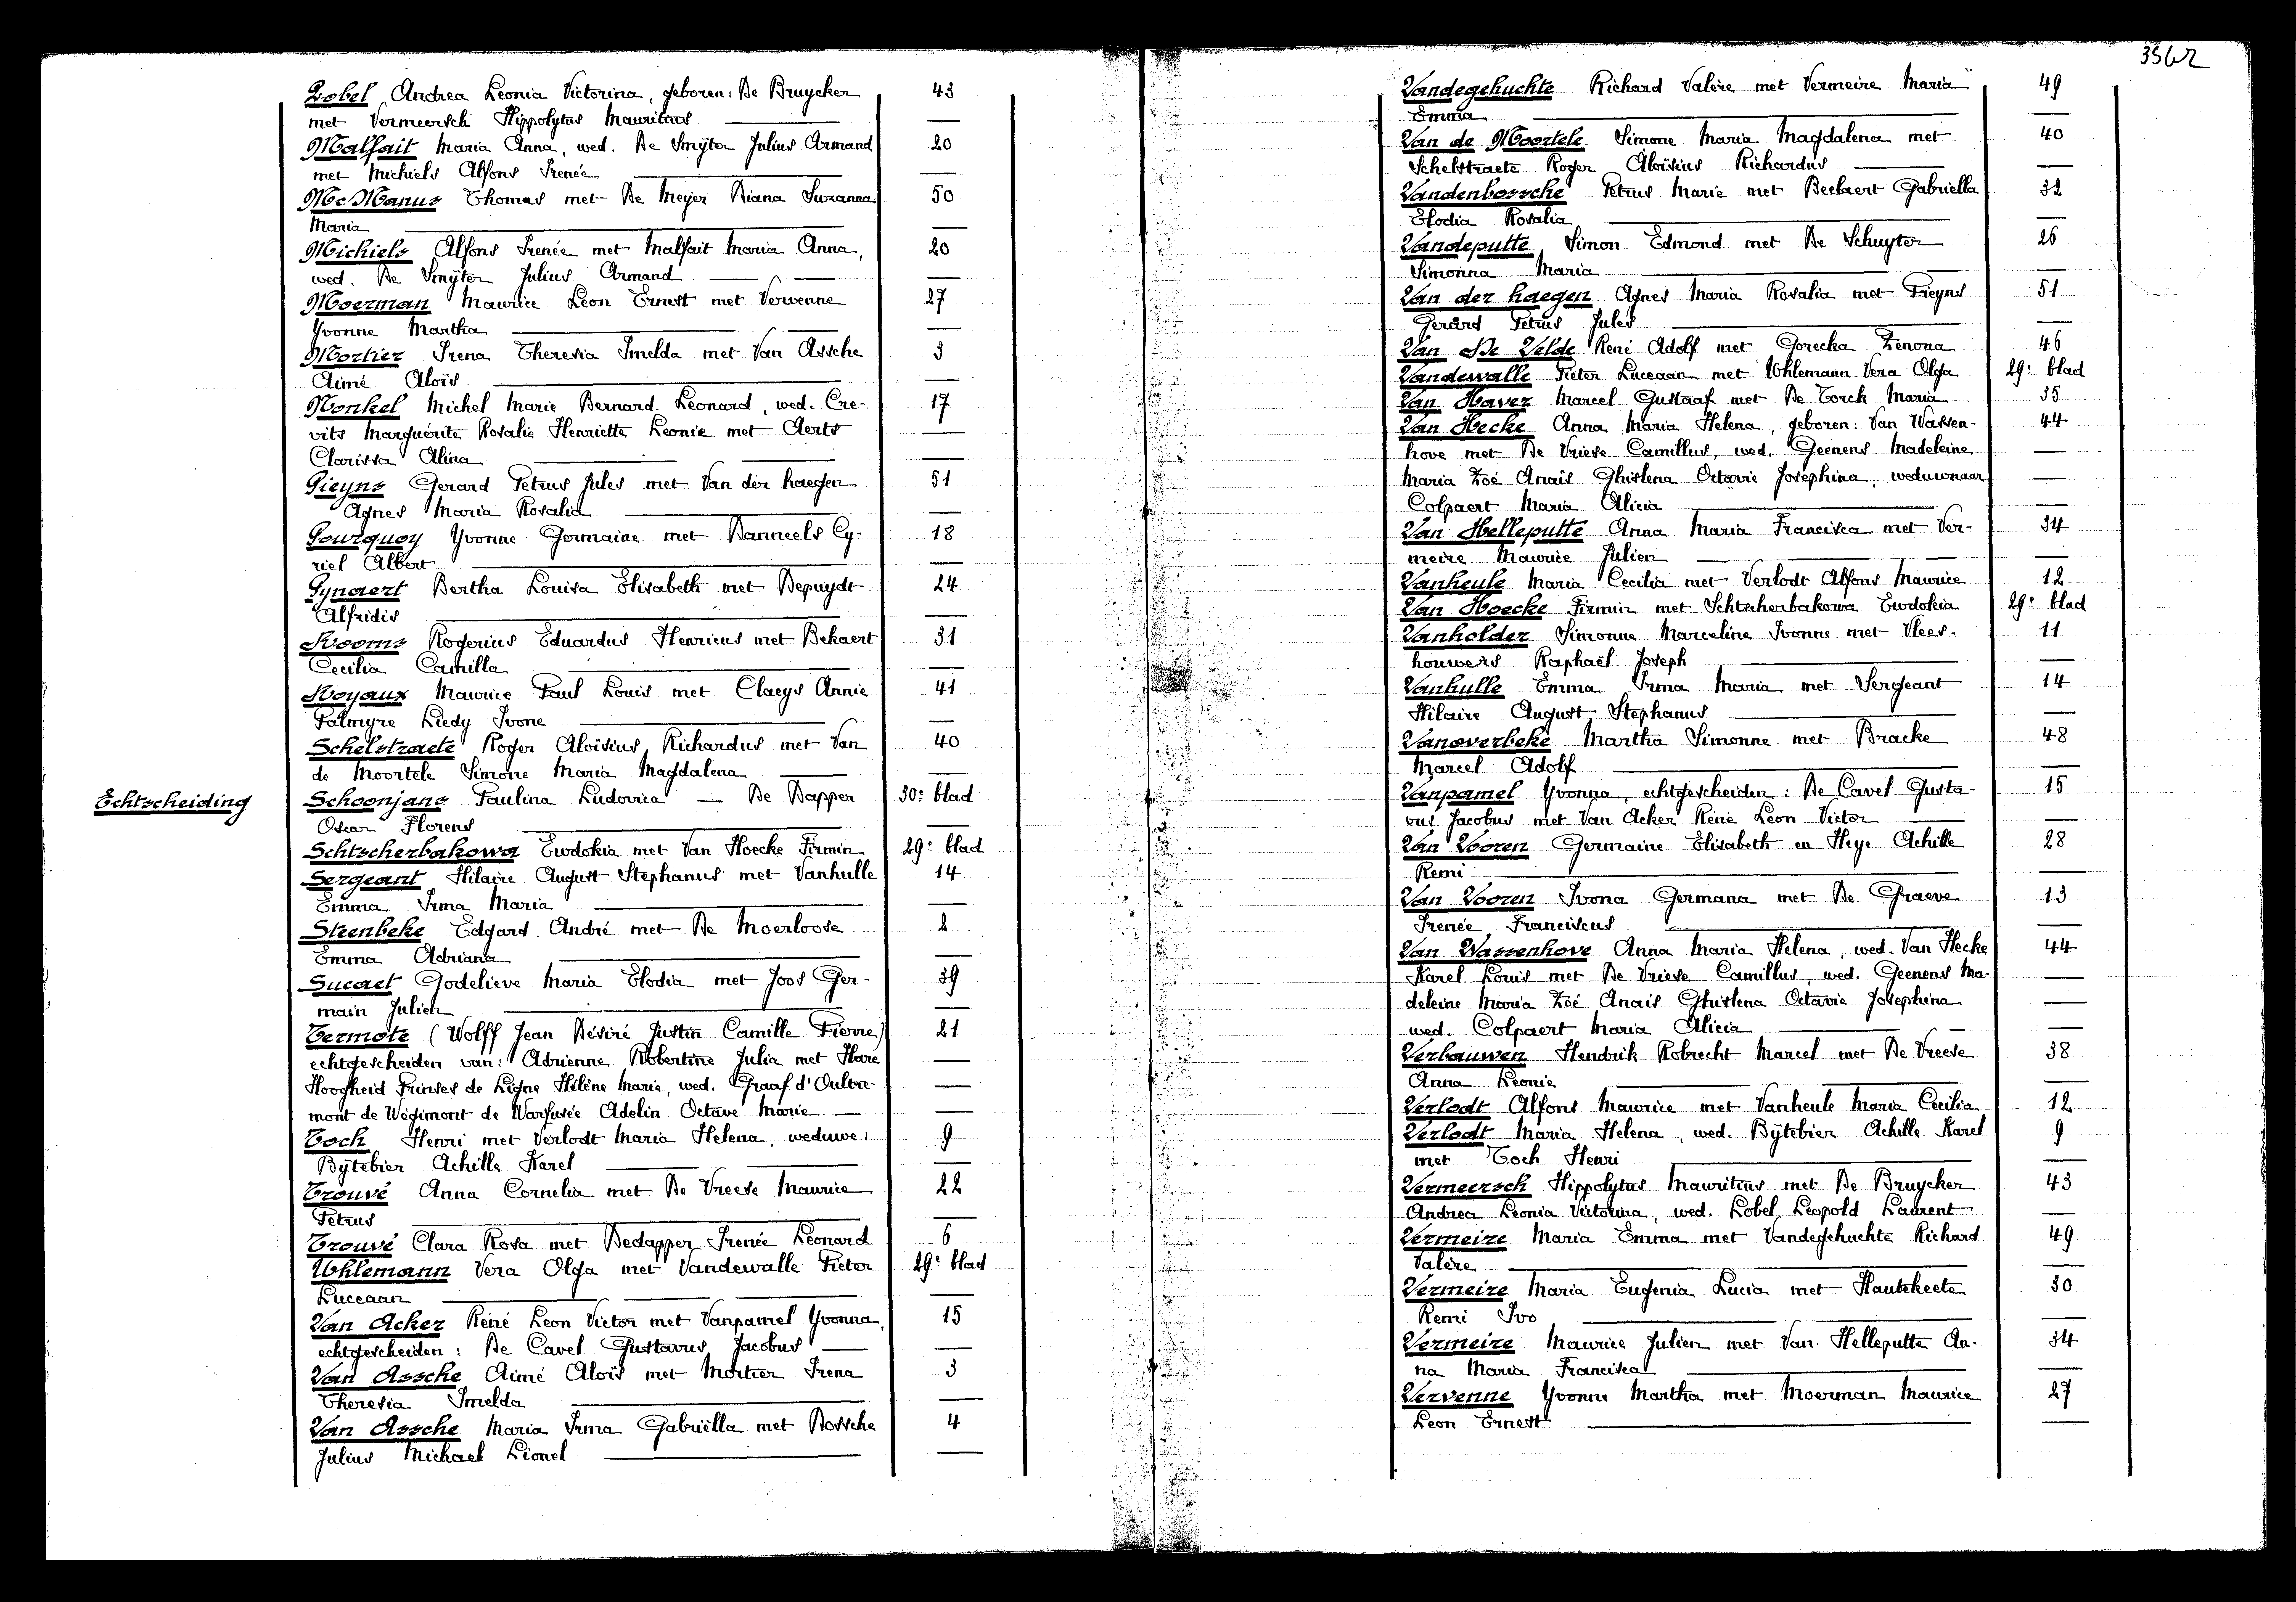 Lobel Andrea Leonia Victorina, geboren: De Bruycker 43
met Vermeersch Hippolytus Mauritius
Malfait Maria Anna, wed. De Smÿter Julius Armand 20
met Michiels Alfons Irenée
Mc Manus Thomas met De Meyer Diana Suzanna 50
Maria
Michiels Alfons Irenée met Malfait Maria Anna, 20
wed. De Smÿter Julius Armand
Moerman Maurice Leon Ernest met Vervenne 27
Yvonne Martha
Mortier Irena Theresia Imelda met Van Assche 3
Aimé Aloïs
Nonkel Michel Marie Bernard Léonard, wed. Cre- 17
vits Marguérite Rosalie Henriette Leonie met Aerts
Clarissa Alina
Pieyns Gerard Petrus Jules met Van der haegen 51
Agnes Maria Rosalia
Pourquoy Yvonne Germaine met Danneels Cy- 18
riel Albert
Pynaert Bertha Louisa Elisabeth met Depuydt 24
Alfridis
Rooms Rogerius Eduardus Henricus met Bekaert 31
Cecilia Camilla
Royaux Maurice Paul Louis met Claeys Annie 41
Palmyre Liedy Ivone
Schelstraete Roger Aloïsius Richardus met Van 40
de Moortele Simone Maria Magdalena
Echtscheiding Schoonjans Paulina Ludovica — De Dapper 30e blad
Oscar Florens
Schtscherbakowa Ewdokia met Van Hoecke Firmin 29e blad
Sergeant Hilaire August Stephanus met Vanhulle 14
Emma Irma Maria
Steenbeke Edgard André met De Moerloose 2
Emma Adriana
Sucaet Godelieve Maria Elodia met Joos Ger- 39
main Julien
Termote (Wolff Jean Désiré Justin Camille Pierre) 21
echtgescheiden van: Adrienne Robertine Julia met Hare
Hoogheid Prinses de Ligne Hélène Marie, wed. Graaf d'Oultre-
mont de Wégimont de Warfusée Adelin Octave Marie
Toch Henri met Verlodt Maria Helena, weduwe: 9
Bÿtebier Achille Karel
Trouvé Anna Cornelia met De Vreese Maurice 22
Petrus
Trouvé Clara Rosa met Dedapper Irenée Léonard 6
Uhlemann Vera Olga met Vandewalle Pieter 29e blad
Luceaan
Van Acker Réné Leon Victor met Vanpamel Yvonna, 15
echtgescheiden: De Cavel Gustavus Jacobus
Van Assche Aimé Aloïs met Mortier Irena 3
Theresia Imelda
Van Assche Maria Irma Gabriëlla met Bossche 4
Julius Michael Lionel
3562
Vandegehuchte Richard Valère met Vermeire Maria 49
Emma
Van de Moortele Simone Maria Magdalena met 40
Schelstraete Roger Aloïsius Richardus
Vandenbossche Petrus Marie met Beelaert Gabriella 32
Elodia Rosalia
Vandeputte Simon Edmond met De Schuyter 26
Simonna Maria
Van der haegen Agnes Maria Rosalia met Pieyns 51
Gerard Petrus Jules
Van De Velde René Adolf met Gorecka Zenona 46
Vandewalle Pieter Luceaan met Uhlemann Vera Olga 29e blad
Van Haver Marcel Gustaaf met De Torck Maria 35
Van Hecke Anna Maria Helena, geboren: Van Wassen- 44
hove met De Vriese Camillus, wed. Geenens Madeleine
Maria Zoé Anaïs Ghislena Octavie Josephina, weduwnaar
Colpaert Maria Alicia
Van Helleputte Anna Maria Francisca met Ver- 34
meire Maurice Julien
Vanheule Maria Cecilia met Verlodt Alfons Maurice 12
Van Hoecke Firmin met Schtscherbakowa Ewdokia 29e blad
Vanholder Simonne Marceline Ivonne met Vlees- 11
houwers Raphaël Joseph
Vanhulle Emma Irma Maria met Sergeant 14
Hilaire August Stephanus
Vanoverbeke Martha Simonne met Bracke 48
Marcel Adolf
Vanpamel Yvonna, echtgescheiden: De Cavel Gusta- 15
vus Jacobus met Van Acker Réné Leon Victor
Van Vooren Germaine Elisabeth en Heye Achille 28
Remi
Van Vooren Ivona Germana met De Graeve 13
Irenée Franciscus
Van Wassenhove Anna Maria Helena, wed. Van Hecke 44
Karel Louis met De Vriese Camillus, wed. Geenens Ma-
deleine Maria Zoé Anaïs Ghislena Octavie Josephina
wed. Colpaert Maria Alicia
Verbauwen Hendrik Robrecht Marcel met De Vreese 38
Anna Leonie
Verlodt Alfons Maurice met Vanheule Maria Cecilia 12
Verlodt Maria Helena, wed. Bÿtebier Achille Karel 9
met Toch Henri
Vermeersch Hippolytus Mauritius met De Bruycker 43
Andrea Leonia Victorina, wed. Lobel Leopold Laurent
Vermeire Maria Emma met Vandegehuchte Richard 49
Valère
Vermeire Maria Eugenia Lucia met Hautekeete 30
Remi Ivo
Vermeire Maurice Julien met Van Helleputte An- 34
na Maria Francisca
Vervenne Yvonne Martha met Moerman Maurice 27
Leon Ernest